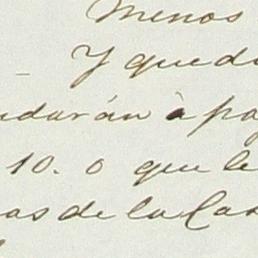 Menos
Y qued
udarán à pag
10. o que le
as de la Cas